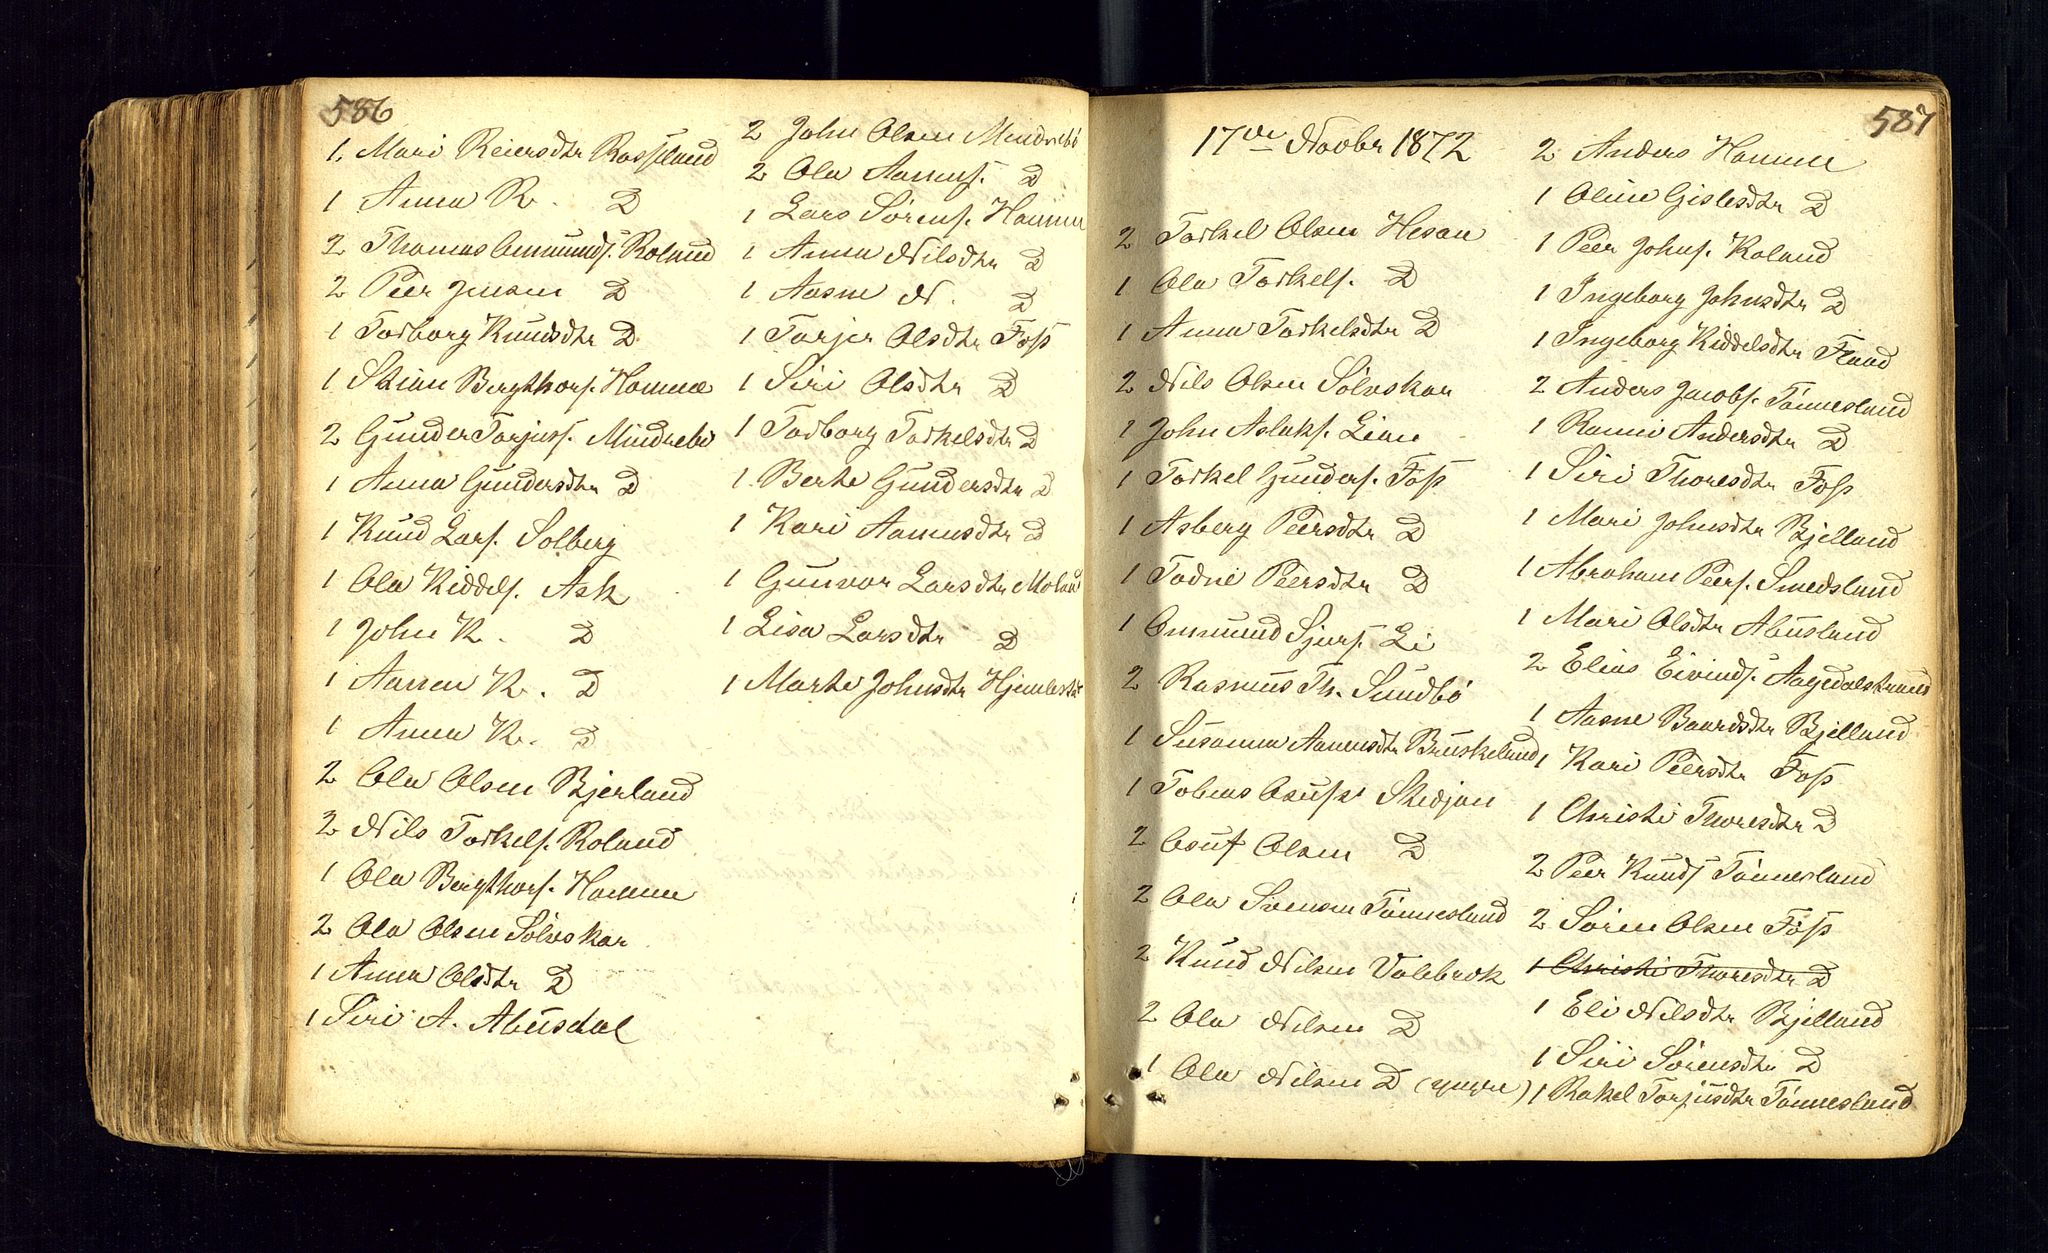 586
1. Mari Reiersdtr Rosseland
1 Anna R. D
2 Thomas Ommunds. Roland
2 Peer Jensen D
1 Torborg Knudsdtr D
1 Stian Bergthors. Homme
2 Gunder Torjuss. Mindrebö
1 Anna Gundersdtr D
1 Knud Lars. Solberg
1 Ola Kiddels. Ask
1 John K. D
1 Aanen K. D
1 Anna K. D
2 Ola Olsen Bjerland
2 Nils Torkels. Roland
1 Ola Bergthors. Homme
2 Ola Olsen Sölvskar
1 Anna Olsdtr D
1 Siri A. Abusdal
2 John Olsen Mindrebö
2 Ola Aanens. D
1 Lars Sörens. Homme
1 Anna Nilsdtr D
1 Aasne N. D
1 Torjer Olsdtr Foss
1 Siri Olsdtr D
1 Torborg Torkelsdtr D
1 Berte Gundersdtr D
1 Kari Aanensdtr D
1 Gunvor Larsdtr
1 Lisa Larsdtr D
1 Marte Johnsdtr
587
17de Novbr 1872
2 Torkel Olsen Hesaa
1 Ola Torkels. D
1 Anna Torkelsdtr D
2 Nils Olsen Sölvskar
1 John Aslaks. Lien
1 Torkel Gunders. Foss
1 Asberg Peersdtr D
1 Todne Peersdtr D
1 Ommund Sjurs. Li
2 Rasmus Th. Sundbö
1 Susanna Aanensdtr Bruskeland
1 Tobias Osufs. Skisjon
2 Osuf Olsen D
2 Ola Svensen Tönnesland
2 Knud Nilsen Valebrok
2 Ola Nilsen D
1 Ola Nilsen D (yngre)
2 Anders Homme
1 Oline Gislesdtr D
1 Peer Johns. Roland
1 Ingeborg Johnsdtr D
1 Ingeborg Kiddelsdtr Flaad
2 Anders Jacobs. Tönnesland
1 Ronni Andersdtr D
1 Siri Thoresdtr Foss
1 Mari Johnsdtr Bjelland
1 Abraham Peers. Smedsland
1 Mari Olsdtr Abusland
2 Elias Eivinds.
1 Aasne Baardsdtr Bjelland
1 Kari Peersdtr Foss
1 Christi Thoresdtr D
2 Peer Knuds Tönnesland
2 Sören Olsen Foss
1 Christi Thoresdtr D
1 Eli Nilsdtr Bjelland
1 Siri Sörensdtr D
1 Rakel Torjusdtr Tönnesland